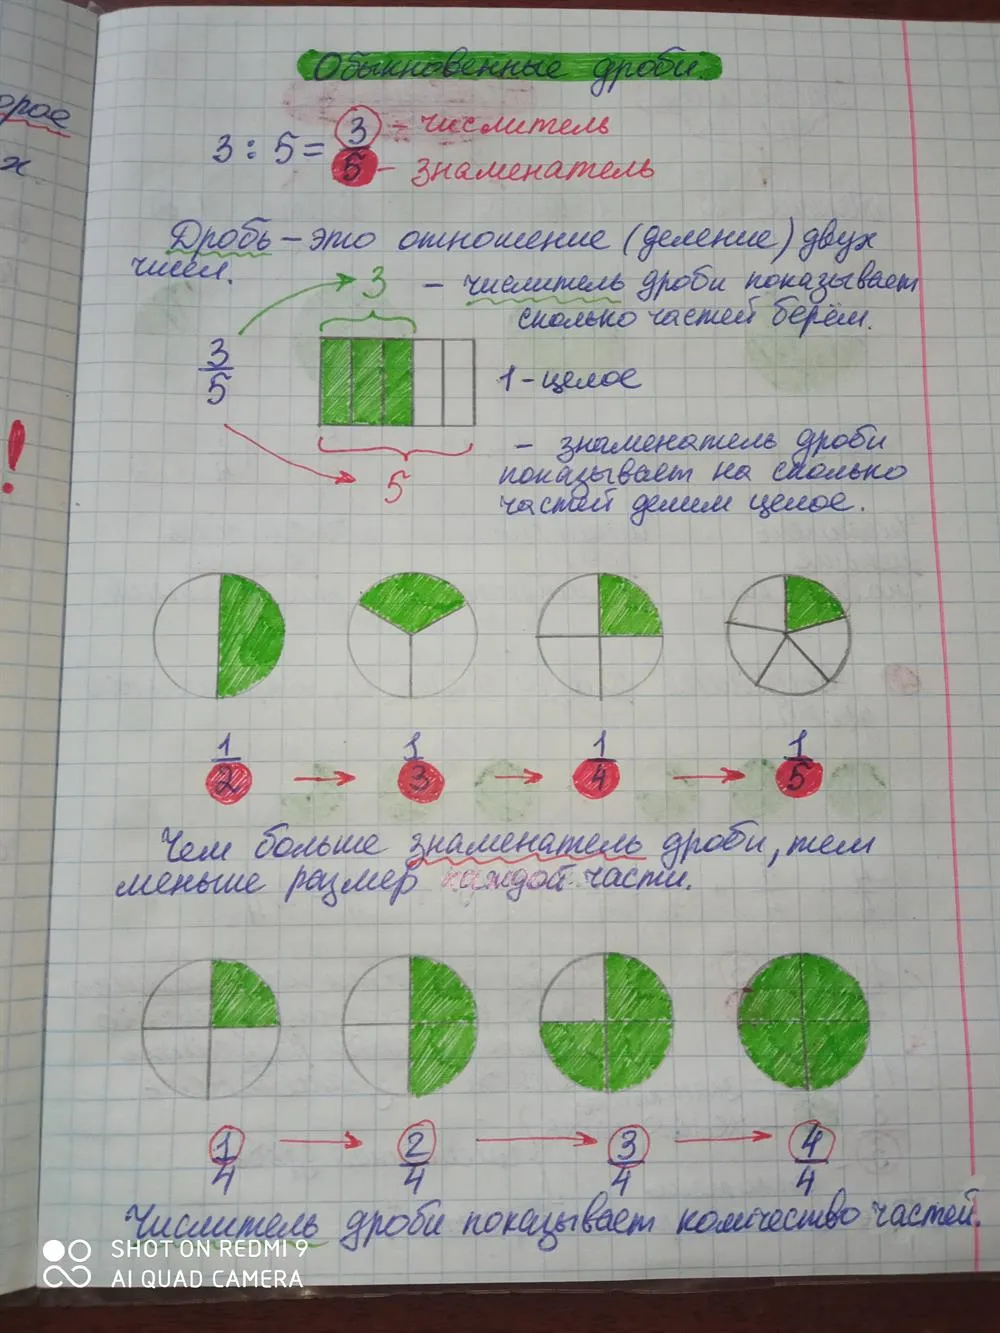 орое
х
Обыкновенные дроби.
3 : 5 = 3/5
– числитель
– знаменатель
Дробь – это отношение (деление) двух
чисел.
3
– числитель дроби показывает
сколько частей берём.
3/5
1 – целое
5
– знаменатель дроби
показывает на сколько
частей делим целое.
!
1/2 → 1/3 → 1/4 → 1/5
Чем больше знаменатель дроби, тем
меньше размер каждой части.
1/4 → 2/4 → 3/4 → 4/4
Числитель дроби показывает количество частей.
SHOT ON REDMI 9
AI QUAD CAMERA